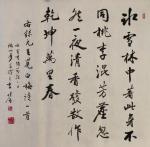 冰雪林中著此身不
同桃李混芳塵忽
然一夜清香發散作
乾坤萬里春
右錄元王冕白梅詩一首